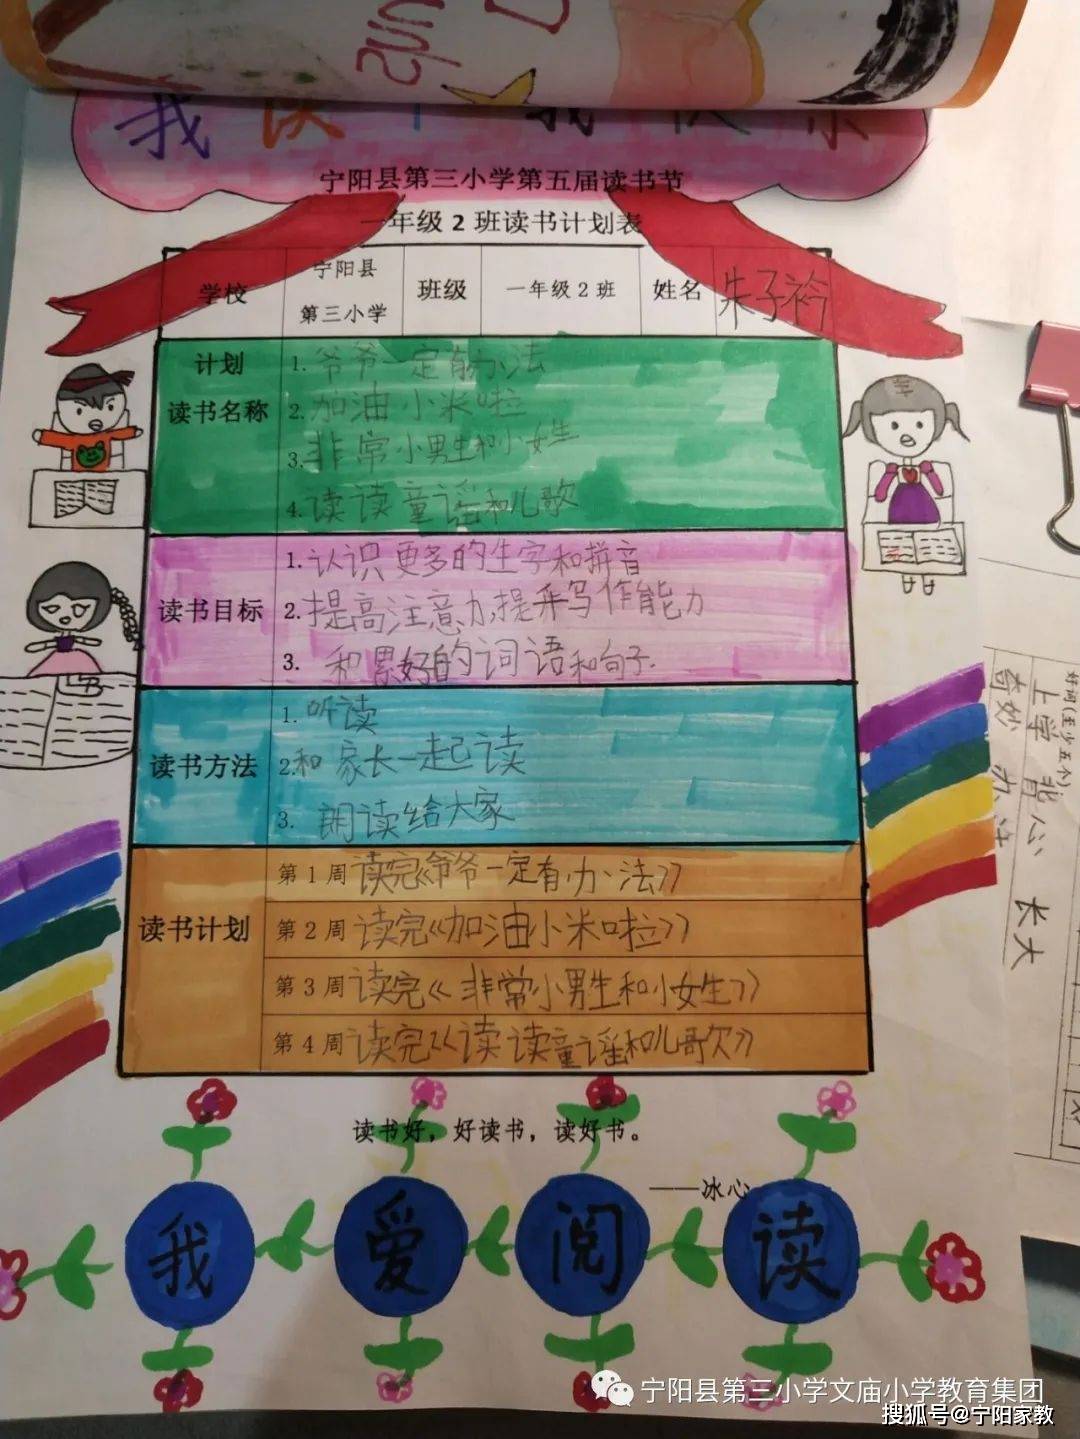 我读 我快乐
宁阳县第三小学第五届读书节
一年级2班读书计划表
学校 宁阳县第三小学 班级 一年级2班 姓名 朱子衿
计划读书名称
1.爷爷一定有办法
2.加油小米啦
3.非常小男生和小女生
4.读读童谣和儿歌
读书目标
1.认识更多的生字和拼音
2.提高注意力,提升写作能力
3. 积累好的词语和句子.
读书方法
1.听读
2.和家长一起读
3. 朗读给大家
读书计划
第1周 读完《爷爷一定有办法》
第2周 读完《加油小米啦》
第3周 读完《非常小男生和小女生》
第4周 读完《读读童谣和儿歌》
读书好，好读书，读好书。
——冰心
我爱阅读
好词(至少五个)
上学 背心 长大
奇妙 办法
宁阳县第三小学文庙小学教育集团
搜狐号@宁阳家教